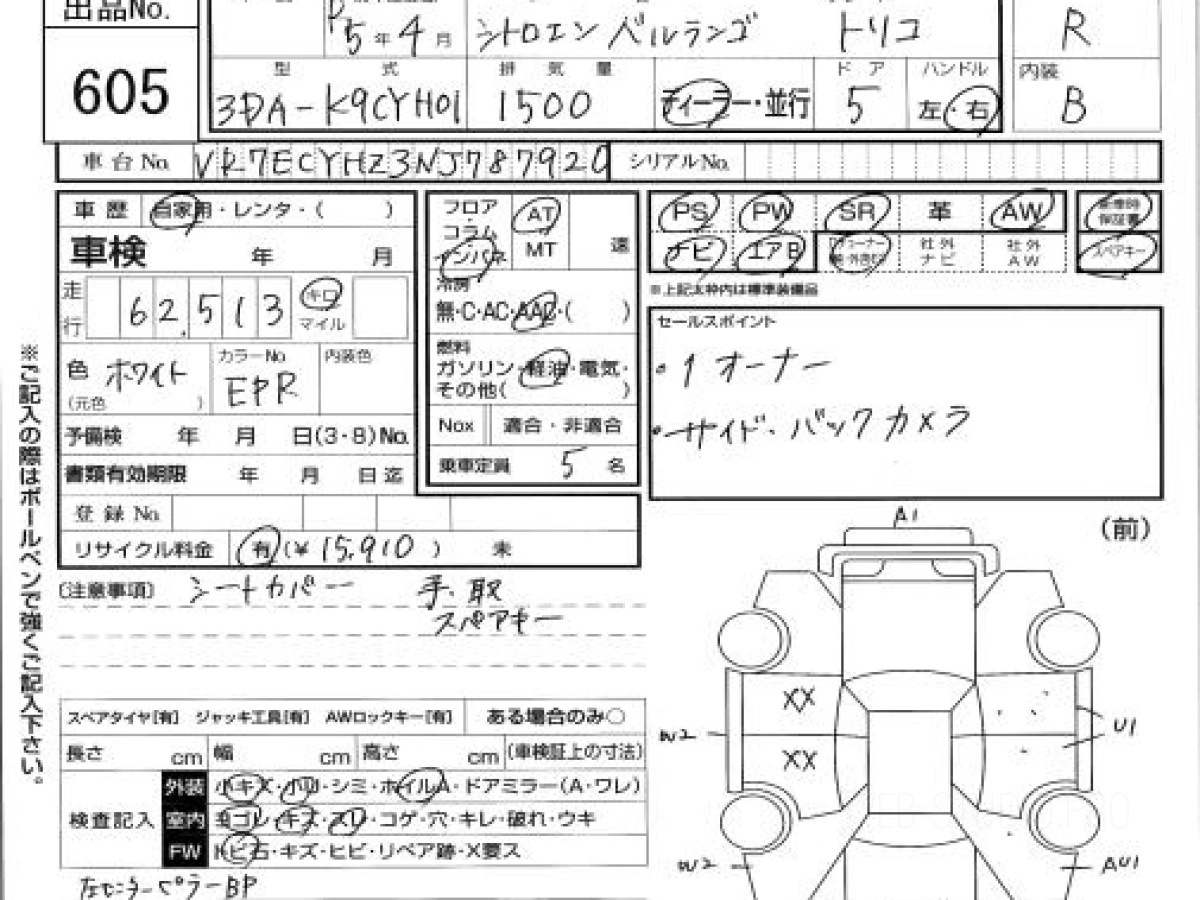 出品No.
605
R5年4月
シトロエン ベルランゴ
トリコ
R
型 式
排 気 量
ド ア
ハンドル
内装
3DA-K9CYH01
1500
ディーラー・並行
5
左・右
B
車台No.
VR7ECYHZ3NJ787920
シリアルNo.
車歴
自家用・レンタ・( )
フロア・コラム
インパネ
AT
MT
速
PS
PW
SR
革
AW
新車時保証書
ナビ
エアB
社外ナビ
社外AW
スペアキー
車検 年 月
※上記太枠内は標準装備品
走行
62,513
キロ
マイル
冷房
無・C・AC・AAC・( )
燃料
ガソリン・軽油・電気・
その他( )
セールスポイント
・1オーナー
・サイド・バックカメラ
色 ホワイト
(元色 )
カラーNo
EPR
内装色
Nox
適合・非適合
予備検 年 月 日(3・8)No.
乗車定員 5 名
書類有効期限 年 月 日迄
登録No.
リサイクル料金 有(¥15,910) 未
〔注意事項〕
シートカバー 手、取
スペアキー
※ご記入の際はボールペンで強くご記入下さい。
(前)
A1
XX
XX
W2
U1
W2
AU1
スペアタイヤ[有] ジャッキ工具[有] AWロックキー[有] ある場合のみ○
長さ cm 幅 cm 高さ cm (車検証上の寸法)
検査記入
外装 小キズ・小凹・シミ・ホイルA・ドアミラー(A・ワレ)
室内 ヨゴレ・キズ・スレ・コゲ・穴・キレ・破れ・ウキ
FW トビ石・キズ・ヒビ・リペア跡・X要ス
左センターピラーBP